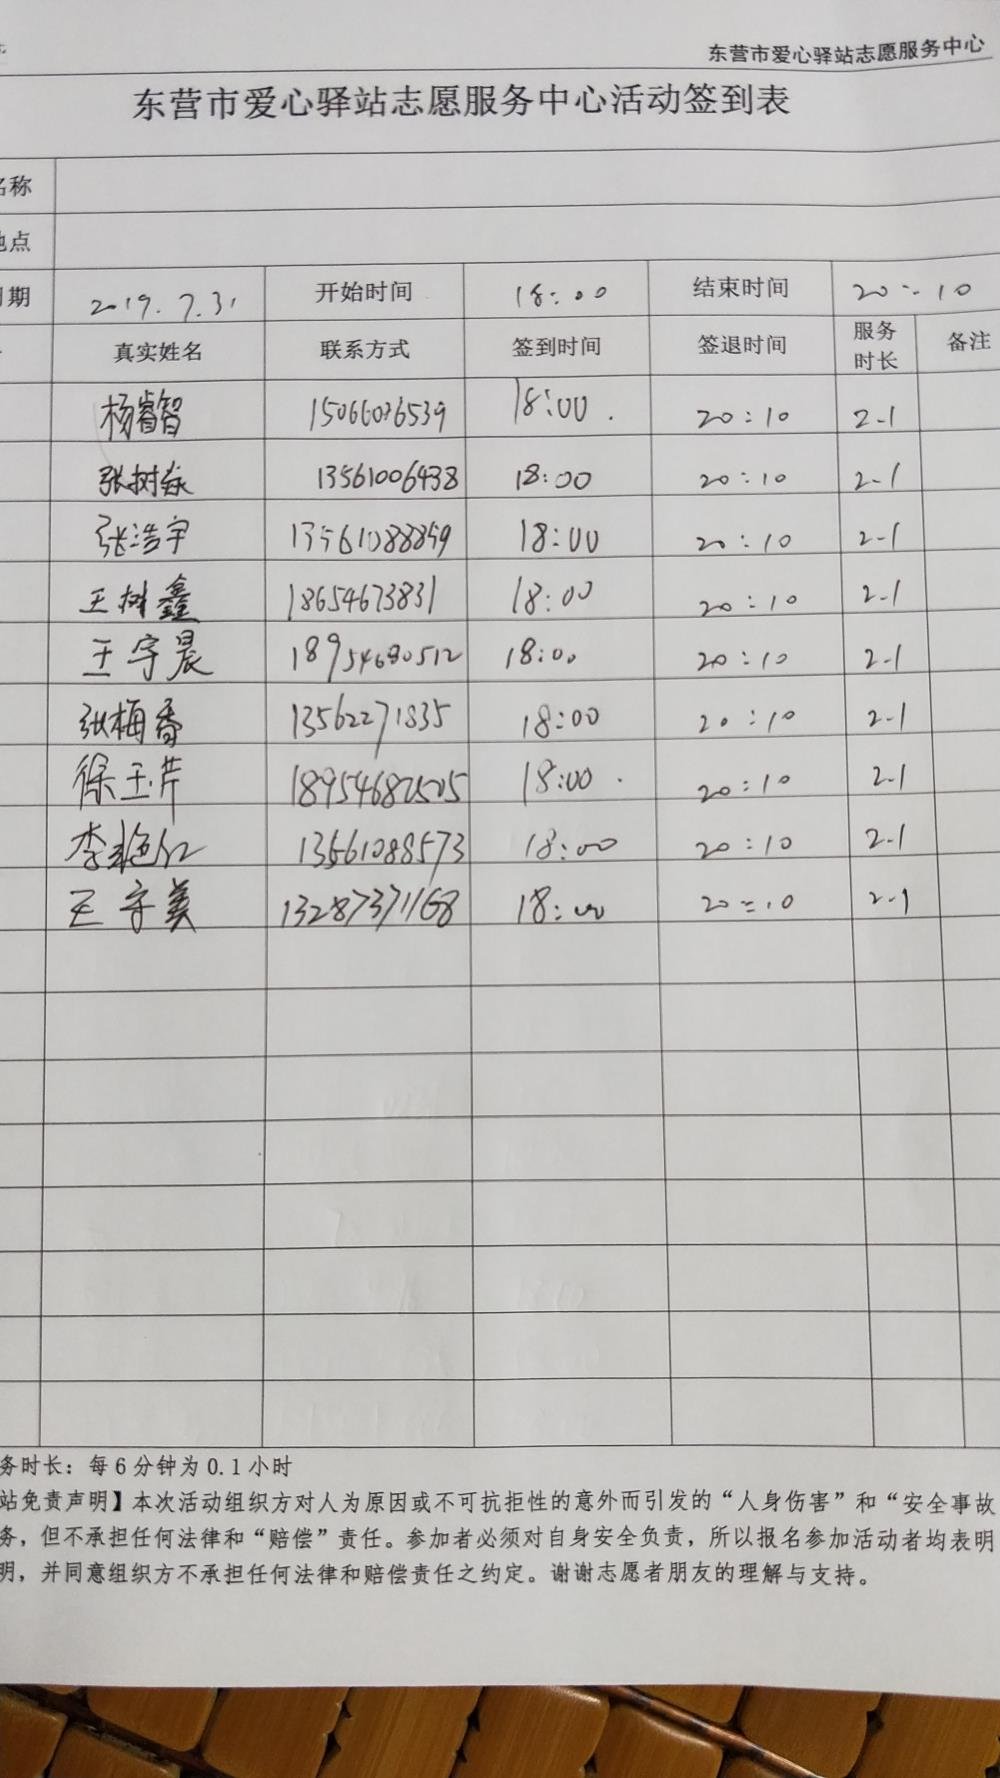 东营市爱心驿站志愿服务中心
东营市爱心驿站志愿服务中心活动签到表
名称
地点
日期 2019.7.31 开始时间 18:00 结束时间 20:10
真实姓名 联系方式 签到时间 签退时间 服务时长 备注
杨睿智 15066036539 18:00 20:10 2.1
张树 13561006438 18:00 20:10 2.1
张浩宇 13561088859 18:00 20:10 2.1
王树鑫 18654673831 18:00 20:10 2.1
王宇晨 18954680512 18:00 20:10 2.1
张梅香 13562271835 18:00 20:10 2.1
徐玉芹 18:00 20:10 2.1
李艳红 13561088573 18:00 20:10 2.1
王守美 13287371168 18:00 20:10 2.1
务时长：每6分钟为0.1小时
站免责声明】本次活动组织方对人为原因或不可抗拒性的意外而引发的“人身伤害”和“安全事故
务，但不承担任何法律和“赔偿”责任。参加者必须对自身安全负责，所以报名参加活动者均表明
明，并同意组织方不承担任何法律和赔偿责任之约定。谢谢志愿者朋友的理解与支持。